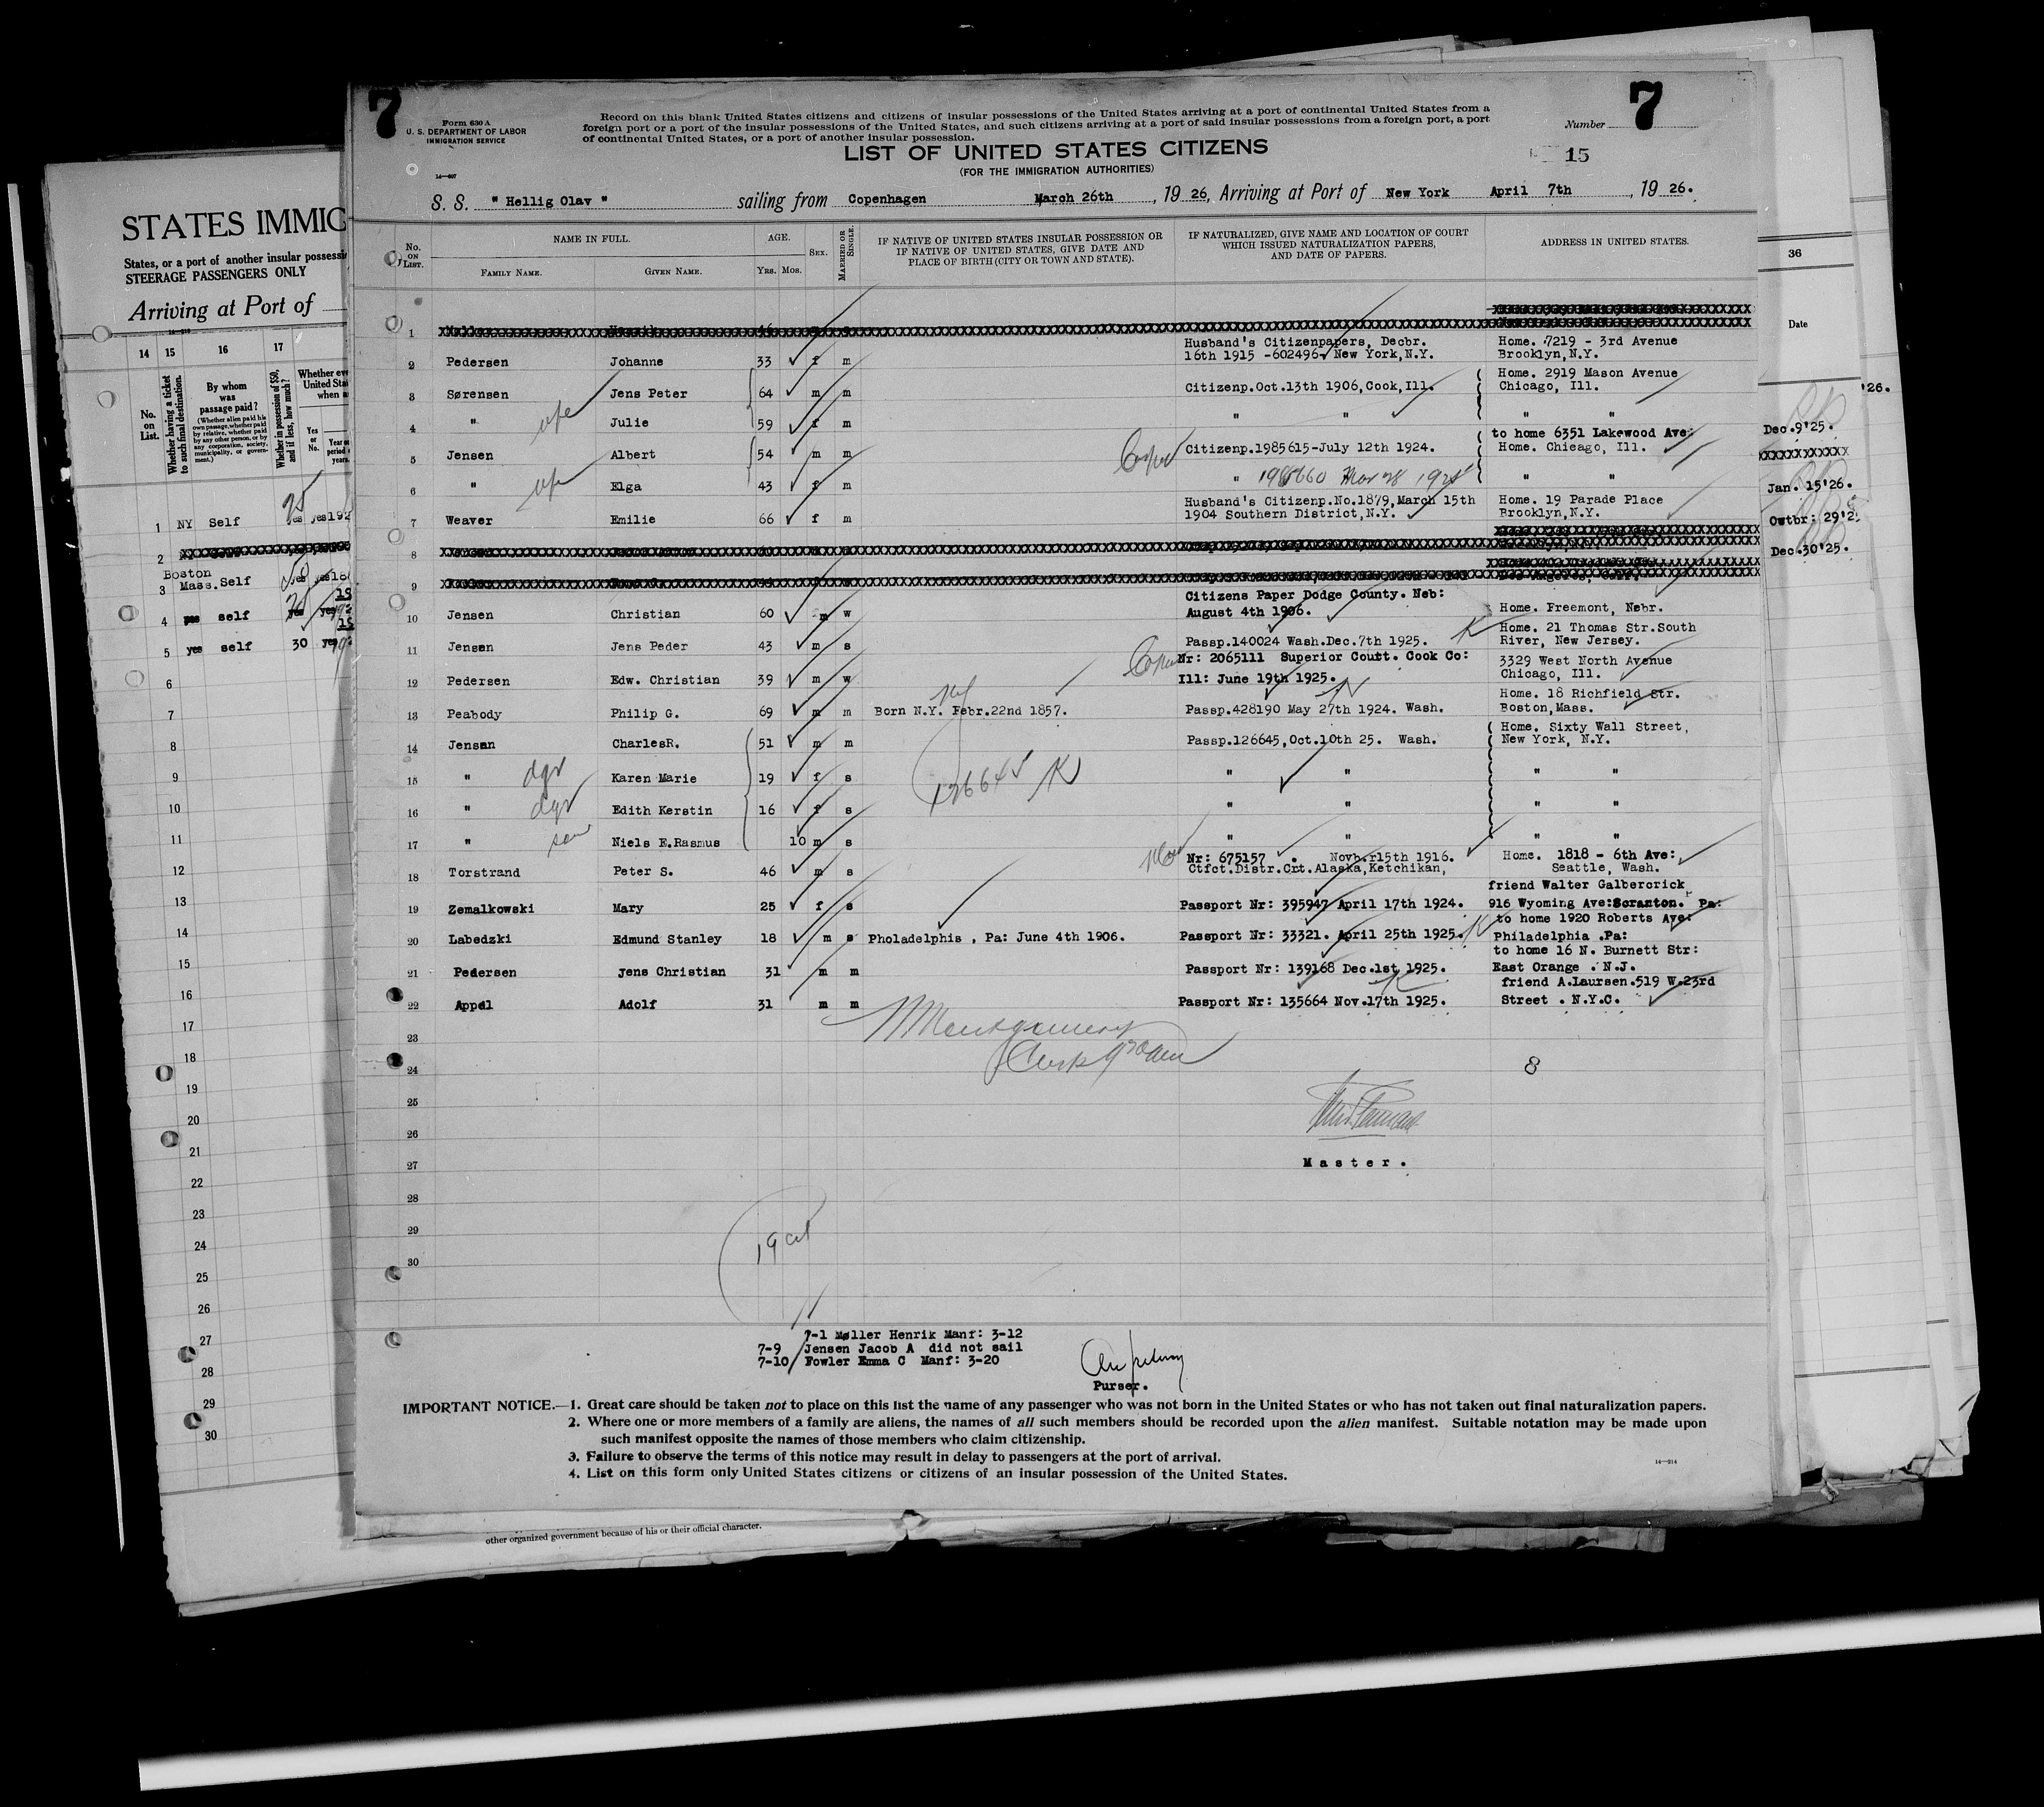 7
7
Form 630 A
U. S. DEPARTMENT OF LABOR
IMMIGRATION SERVICE
14—607
Record on this blank United States citizens and citizens of insular possessions of the United States arriving at a port of continental United States from a
foreign port or a port of the insular possessions of the United States, and such citizens arriving at a port of said insular possessions from a foreign port, a port
of continental United States, or a port of another insular possession.
Number
15
LIST OF UNITED STATES CITIZENS
(FOR THE IMMIGRATION AUTHORITIES)
S. S. " Hellig Olav " sailing from Copenhagen March 26th , 19 26, Arriving at Port of New York April 7th , 19 26.
No. ON LIST. NAME IN FULL. AGE. SEX. MARRIED OR SINGLE. IF NATIVE OF UNITED STATES INSULAR POSSESSION OR IF NATIVE OF UNITED STATES, GIVE DATE AND PLACE OF BIRTH (CITY OR TOWN AND STATE). IF NATURALIZED, GIVE NAME AND LOCATION OF COURT WHICH ISSUED NATURALIZATION PAPERS, AND DATE OF PAPERS. ADDRESS IN UNITED STATES.
FAMILY NAME. GIVEN NAME. Yrs. Mos.
1
2 Pedersen Johanne 33 f m Husband's Citizenpapers, Decbr. 16th 1915 -602496- New York,N.Y. Home. 7219 - 3rd Avenue Brooklyn,N.Y.
3 Sørensen Jens Peter 64 m m Citizenp.Oct.13th 1906,Cook,Ill. Home. 2919 Mason Avenue Chicago, Ill.
4 " Julie 59 f m " " " "
5 Jensen Albert 54 m m Citizenp.1985615-July 12th 1924. to home 6351 Lakewood Ave: Home. Chicago, Ill.
6 " Elga 43 f m " " "
7 Weaver Emilie 66 f m Husband's Citizenp.No.1879,March 15th 1904 Southern District,N.Y. Home. 19 Parade Place Brooklyn,N.Y.
8
9
10 Jensen Christian 60 m w Citizens Paper Dodge County. Neb: August 4th 1906. Home. Freemont, Nebr.
11 Jensen Jens Peder 43 m s Passp.140024 Wash.Dec.7th 1925. Home. 21 Thomas Str.South River, New Jersey.
12 Pedersen Edw. Christian 39 m w Nr: 2065111 Superior Coutt. Cook Co: Ill: June 19th 1925. 3329 West North Avenue Chicago, Ill.
13 Peabody Philip G. 69 m m Born N.Y. Febr.22nd 1857. Passp.428190 May 27th 1924. Wash. Home. 18 Richfield Str. Boston,Mass.
14 Jensen CharlesR. 51 m m Passp.126645,Oct.10th 25. Wash. Home. Sixty Wall Street, New York, N.Y.
15 " dgr Karen Marie 19 f s 126645 " " " "
16 " dgr Edith Kerstin 16 f s " " " "
17 " son Niels E.Rasmus 10 m s " " " "
18 Torstrand Peter S. 46 m s Nr: 675157 . Novb.r15th 1916. Ctfct.Distr.Crt.Alaska,Ketchikan, Home. 1818 - 6th Ave: Seattle, Wash.
19 Zemalkowski Mary 25 f s Passport Nr: 395947 April 17th 1924. friend Walter Galbercrick 916 Wyoming Ave:Scranton. Pa:
20 Labedzki Edmund Stanley 18 m s Pholadelphis , Pa: June 4th 1906. Passport Nr: 33321. April 25th 1925. to home 1920 Roberts Ave: Philadelphia .Pa:
21 Pedersen Jens Christian 31 m m Passport Nr: 139168 Dec.1st 1925. to home 16 N. Burnett Str: East Orange . N.J.
22 Appel Adolf 31 m m Passport Nr: 135664 Nov.17th 1925. friend A.Laursen.519 W.23rd Street . N.Y.C.
23
24 8
25
26
27 Master.
28
29
30
7-1 Møller Henrik Manf: 3-12
7-9 Jensen Jacob A did not sail
7-10 Fowler Emma C Manf: 3-20
Purser.
IMPORTANT NOTICE.—1. Great care should be taken not to place on this list the name of any passenger who was not born in the United States or who has not taken out final naturalization papers.
2. Where one or more members of a family are aliens, the names of all such members should be recorded upon the alien manifest. Suitable notation may be made upon
such manifest opposite the names of those members who claim citizenship.
3. Failure to observe the terms of this notice may result in delay to passengers at the port of arrival.
4. List on this form only United States citizens or citizens of an insular possession of the United States.
14—214
STATES IMMIG
States, or a port of another insular possessi
STEERAGE PASSENGERS ONLY
Arriving at Port of
14 15 16 17
No. on List.
Whether having a ticket to such final destination.
By whom was passage paid?
(Whether alien paid his own passage, whether paid by relative, whether paid by any other person, or by any corporation, society, municipality, or government.)
Whether in possession of $50, and if less, how much?
Whether eve
United Stat
when a
Yes or No.
Year or period o years
1 NY Self yes yes192
2
3 Boston Mass.Self yes yes18
4 yes self yes yes
5 yes self 30 yes
6
7
8
9
10
11
12
13
14
15
16
17
18
19
20
21
22
23
24
25
26
27
28
29
30
other organized government because of his or their official character.
36
Date
'26.
Dec.9'25.
Jan. 15'26.
Owtbr: 29'2
Dec.30'25.